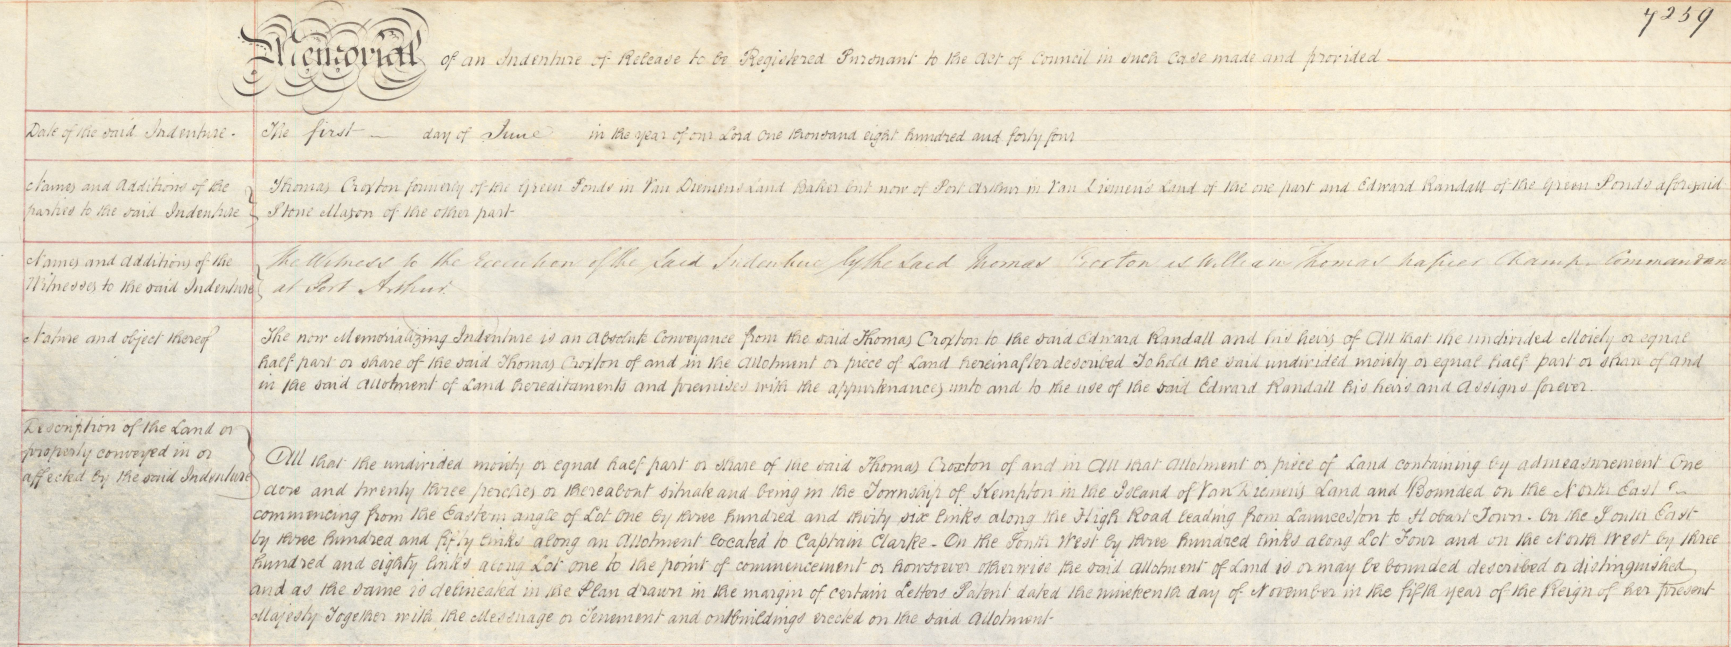 7259
Memorial of an Indenture of Release to be Registered Pursuant to the Act of Council in such Case made and provided
Date of the said Indenture.
The first day of June in the year of our Lord One thousand eight hundred and forty four
Names and Additions of the
parties to the said Indenture
Thomas Croxton formerly of the Green Ponds in Van Diemens Land Baker but now of Port Arthur in Van Diemen's Land of the one part and Edward Randall of the Green Ponds aforesaid
Stone Mason of the other part
Names and Additions of the
Witnesses to the said Indenture
The Witness to the Execution of the said Indenture by the said Thomas Croxton is William Thomas Napier Champ Commandan
at Port Arthur.
Nature and object thereof
The now Memorializing Indenture is an Absolute Conveyance from the said Thomas Croxton to the said Edward Randall and his heirs of All that the undivided Moiety or equal
half part or share of the said Thomas Croxton of and in the Allotment or piece of Land hereinafter described To hold the said undivided moiety or equal half part or share of and
in the said Allotment of Land hereditaments and premises with the appurtenances unto and to the use of the said Edward Randall his heirs and Assigns forever.
Description of the Land or
property conveyed in or
affected by the said Indenture
All that the undivided moiety or equal half part or share of the said Thomas Croxton of and in All that Allotment or piece of Land containing by admeasurement One
Acre and twenty three perches or thereabout situate and being in the Township of Kempton in the Island of Van Diemen's Land and Bounded on the North East
commencing from the Eastern angle of Lot One by three hundred and thirty six links along the High Road leading from Launceston to Hobart Town. On the South East
by three hundred and fifty links along an Allotment located to Captain Clarke - On the South West by three hundred links along Lot Four and on the North West by three
hundred and eighty links along Lot one to the point of commencement or howsoever otherwise the said Allotment of Land is or may be bounded described or distinguished
and as the same is delineated in the Plan drawn in the margin of certain Letters Patent dated the nineteenth day of November in the fifth year of the Reign of her present
Majesty Together with the Messuage or Tenement and outbuildings erected on the said Allotment